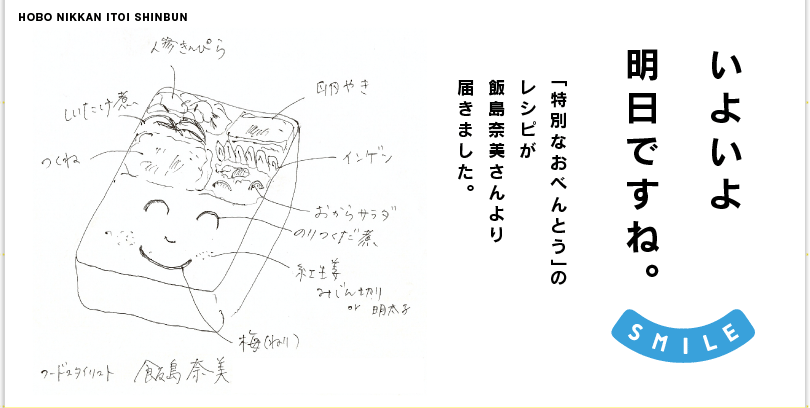 HOBO NIKKAN ITOI SHINBUN
いよいよ
明日ですね。
「特別なおべんとう」の
レシピが
飯島奈美さんより
届きました。
SMILE
人参きんぴら
しいたけ煮
卵やき
つくね
インゲン
おからサラダ
のりつくだ煮
紅生姜
みじん切り
or 明太子
梅(ねり)
フードスタイリスト 飯島奈美